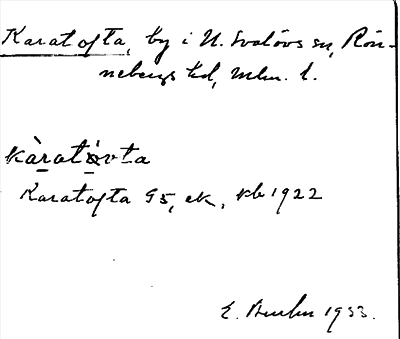 Karatofta, by i N. Svalövs sn, Rön-
nebergs hd, Mlm. l.
kàratòvta
Karatofta G5, ek, kb 1922
E. 1933.